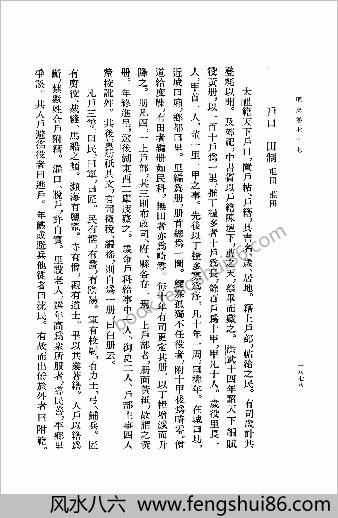 明史卷七十七
一八七八
戶口 田制 屯田 莊田
太祖籍天下戶口，置戶帖、戶籍，具書名、歲、居地。籍上戶部，帖給之民。有司歲計其
登耗以聞。及郊祀，中書省以戶籍陳壇下，薦之天，祭畢而藏之。洪武十四年詔天下編賦
役黃冊，以一百十戶爲一里，推丁糧多者十戶爲長，餘百戶爲十甲，甲凡十人。歲役里長一
人，甲首一人，董一里一甲之事。先後以丁糧多寡爲序，凡十年一周，曰排年。在城曰坊，
近城曰廂，鄉都曰里。里編爲冊，冊首總爲一圖。鰥寡孤獨不任役者，附十甲後爲畸零。僧
道給度牒，有田者編冊如民科，無田者亦爲畸零。每十年有司更定其冊，以丁糧增減而升
降之。冊凡四：一上戶部，其三則布政司、府、縣各存一焉。上戶部者，冊面黃紙，故謂之黃
冊。年終進呈，送後湖東西二庫庋藏之。歲命戶科給事中一人、御史二人、戶部主事四人
釐校訛舛。其後黃冊祗具文，有司徵稅、編徭，則自爲一冊，曰白冊云。
凡戶三等：曰民，曰軍，曰匠。民有儒，有醫，有陰陽。軍有校尉，有力士，弓、鋪兵。匠
有廚役、裁縫、馬船之類。瀕海有鹽竈。寺有僧，觀有道士。畢以其業著籍。人戶以籍爲
斷，禁數姓合戶附籍。漏口、脫戶，許自實。里設老人，選年高爲衆所服者，導民善，平鄉里
爭訟。其人戶避徭役者曰逃戶。年饑或避兵他徙者曰流民。有故而出僑於外者曰附籍。
风水八六 www.fengshui86.com